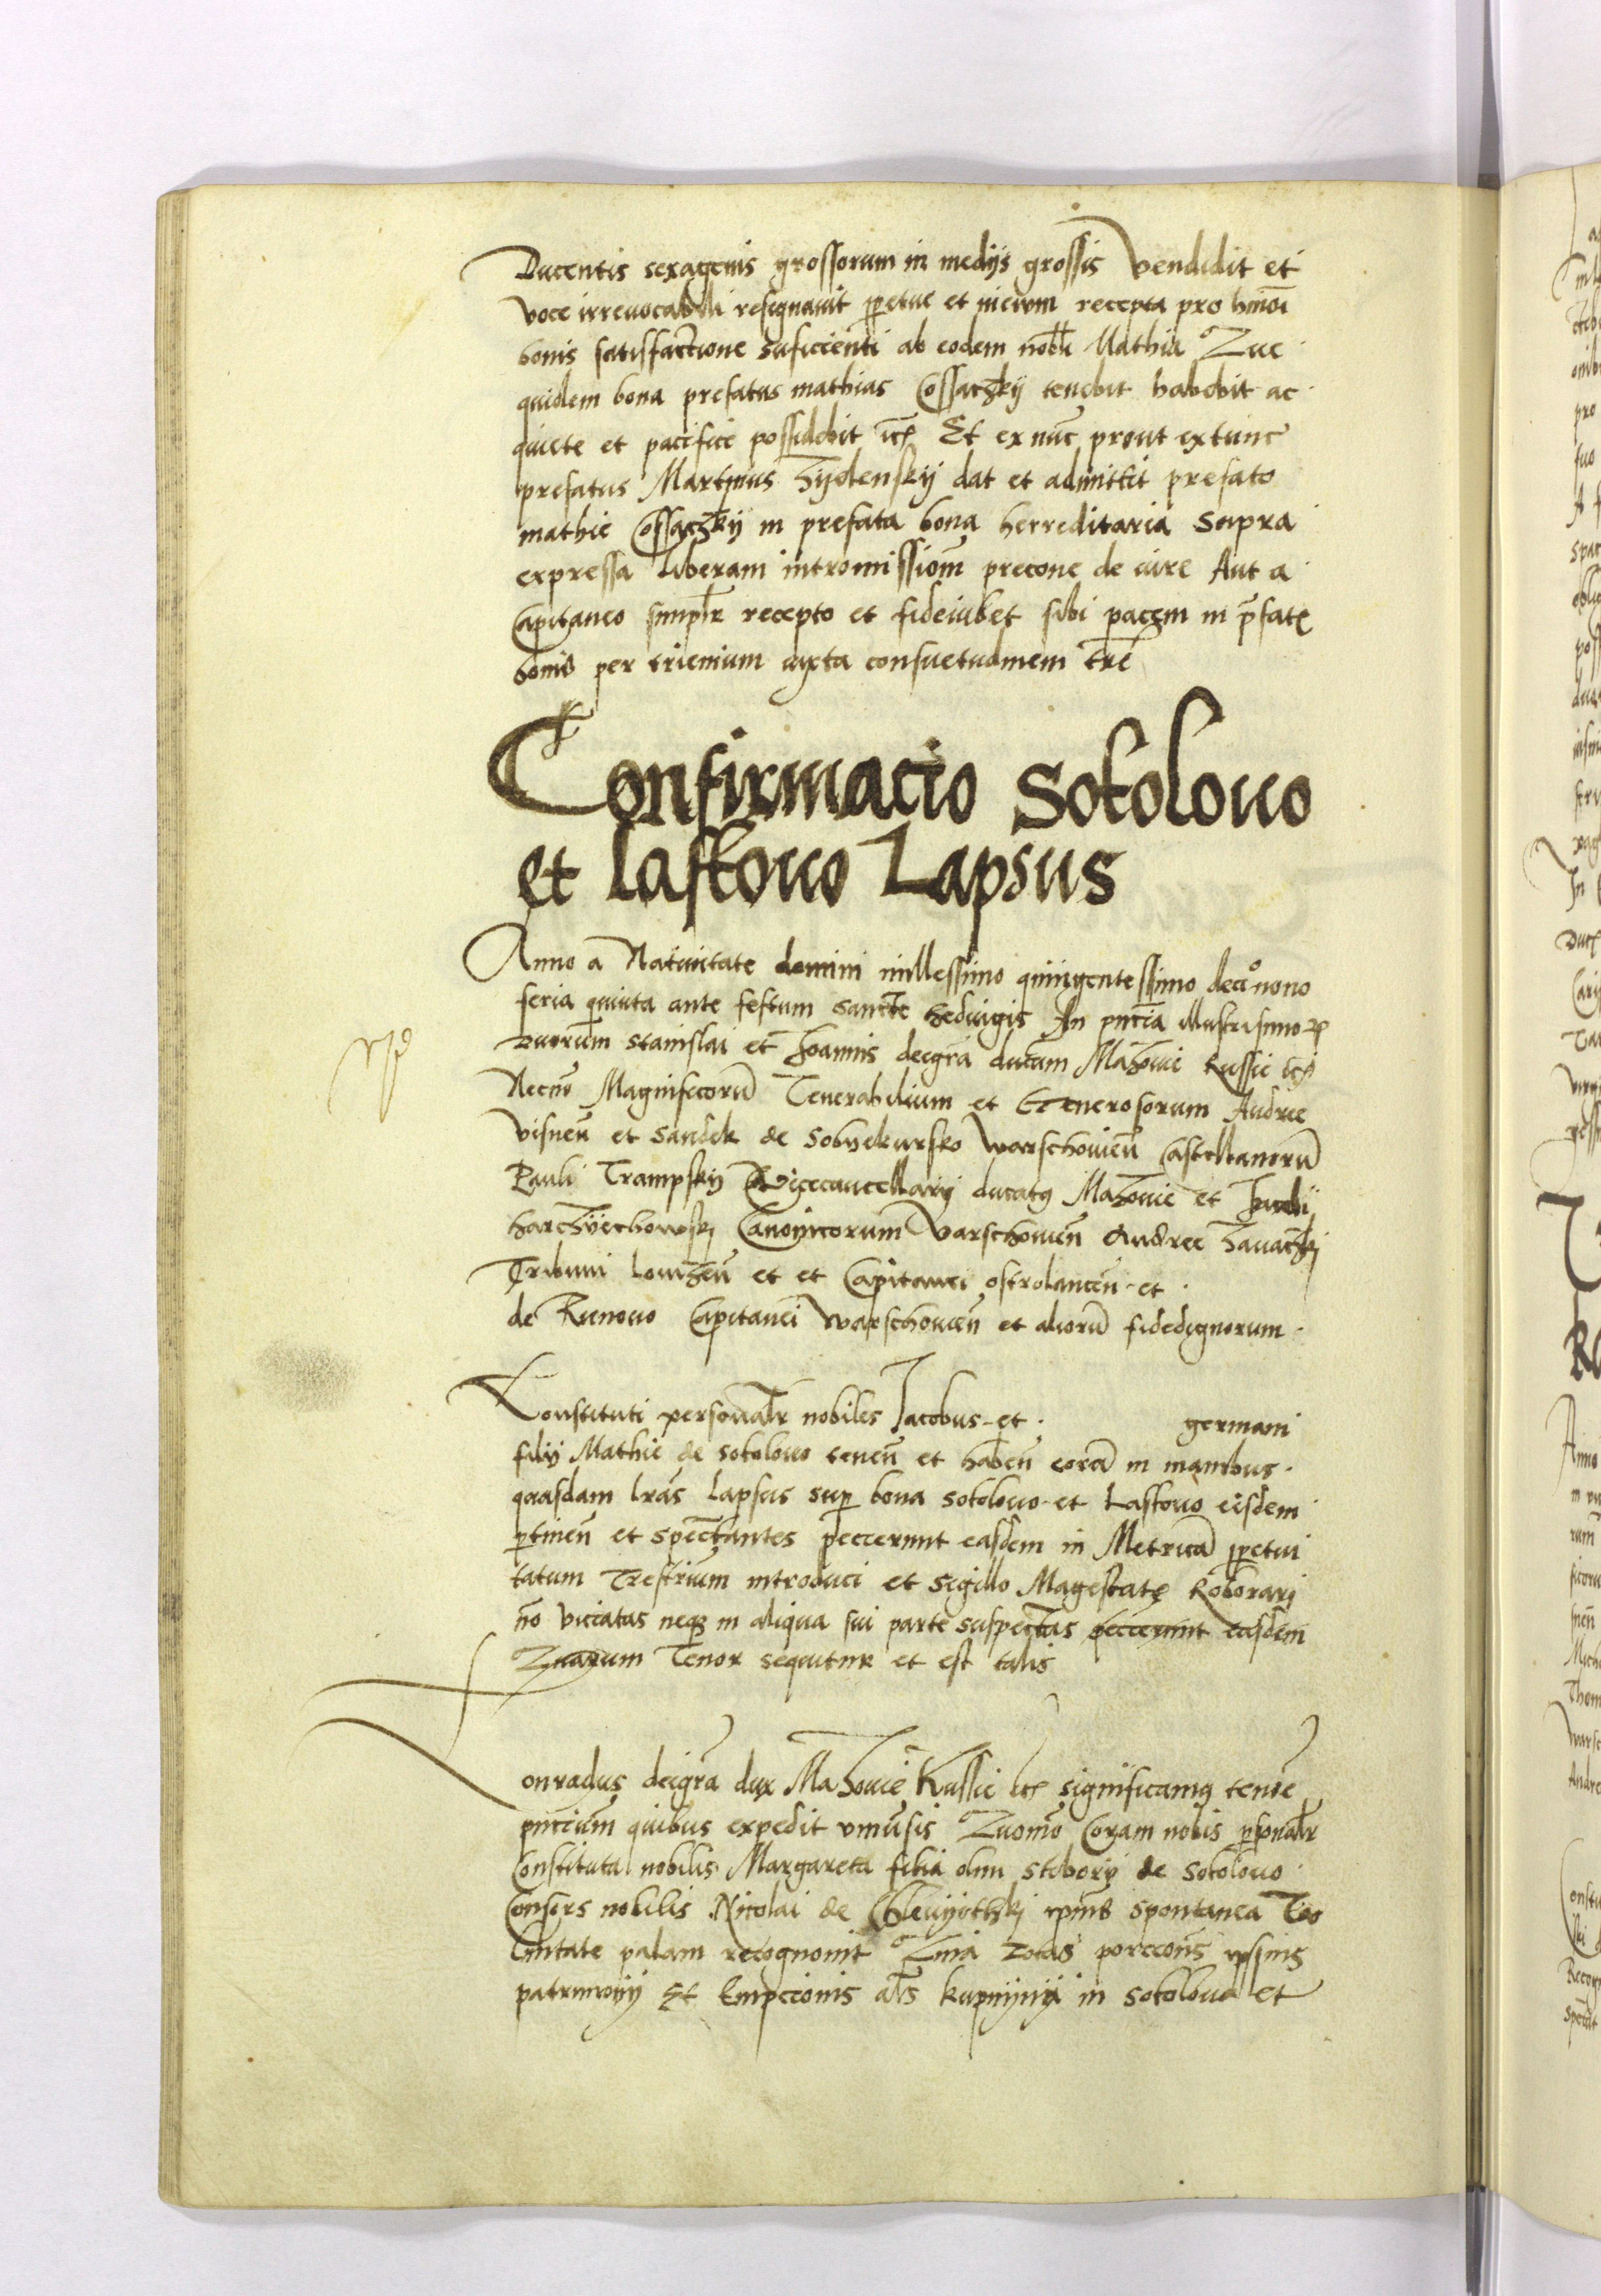 Ducentis sexagenis grossorum in medijs grossis Vendidit et
voce irreuocabili resignauit ꝑpetue et in eium recepta pro hmōi
bonis satisfactione suficienti ab eodem nobli Mathia Zue
quidem bona prefatus mathias Cossaczkij tenebit habebit ac
quiete et pacifice possidebit ꝛcꝭ Et ex nūc prout extunc
prefatus Martinus Zijolenskij dat et admittit prefato
mathie Cossaczkij in prefata bona herreditaria supra
expressa liberam intromissionē precone de iure Aut a
Capitaneo simplr recepto et fideiubet sibi pacem in p̄fatꝭ
bonis per trienium iuxta consuetudinem tr̄e
Confirmacio Sokolouo
et laskouo Lapsus
Anno a Natiuitate domini millessimo quingentessimo decīo nono
feria quinta ante festum sancte Heduigis In pn̄tia illustrissimoꝝ
Ducum Stanislai et Joannis deigra ducum Mazouie Russie ꝛcꝭ
Necnō Magnificorū Venerabilium et Generosorum Andree
Visneñ et Sandek de Sobijekursko Warschouieñ Castellanorū
Pauli Trampskij Vicecancellarij ducatꝰ Mazouie et Jacobi
Harczijechowskj Canonicorum Varschouieñ Andree Zauaczkj
Tribuni lomzeñ et et Capitanei ostrolanceñ et
de Runouo Capitanei Warschouieñ et aliorū fidedignorum
Constituti personalr nobiles Jacobus et germani
filij Mathie de sokolouo teneñ et habeñ corā in manibus
quasdam lr̄as lapsus sup bona sokolouo et Laskouo eisdem
ꝑtineñ et spectantes pecierunt easdem in Metricā ꝑpetui
tatum Terestrium introduci et sigillo Magestatꝭ Roborarj
nō viciatas neqꝫ in aliqua sui parte suspectas pecierunt easdem
Quarum Tenor sequitur et est talis
Conradus deigra dux Mazouie Russie ꝛcꝭ significamꝰ tenore
pn̄cium quibus expedit vniuersis Quomō Coram nobis ꝑsonalr
Constituta nobilis Margareta filia olim stiborij de sokolouo
Consors nobilis Nicolai de spontanea Vo
luntate palam recognouit Quia totas porcōnes ipsius
patrimonij Et Empcionis als kupnijnij in sokolouo et